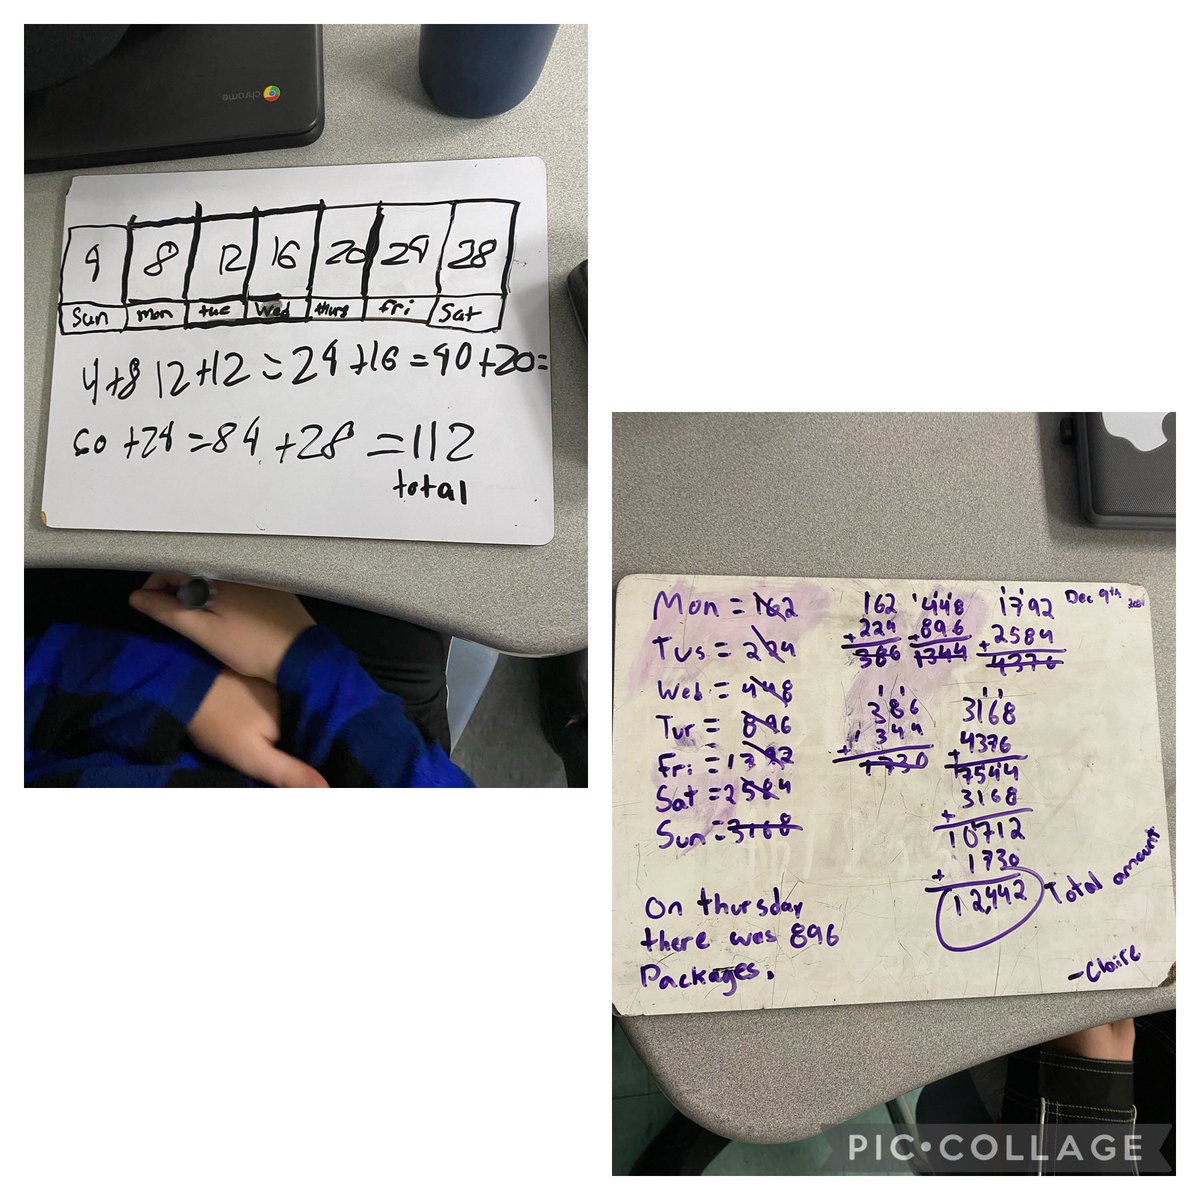 chrome
4 8 12 16 20 24 28
Sun mon tue Wed thurs fri Sat
4+8 12+12=24+16=40+20=
60+24=84+28=112
total
Dec 9th
Mon = 162
Tus = 224
Wed = 448
Tur = 896
Fri = 1792
Sat = 2584
Sun = 3168
162
+224
386
448
+896
1344
1792
+2584
4376
386
+1344
1730
3168
+4376
7544
+3168
10712
+1730
12,442 Total amount
On thursday
there was 896
Packages.
-Claire
PIC•COLLAGE